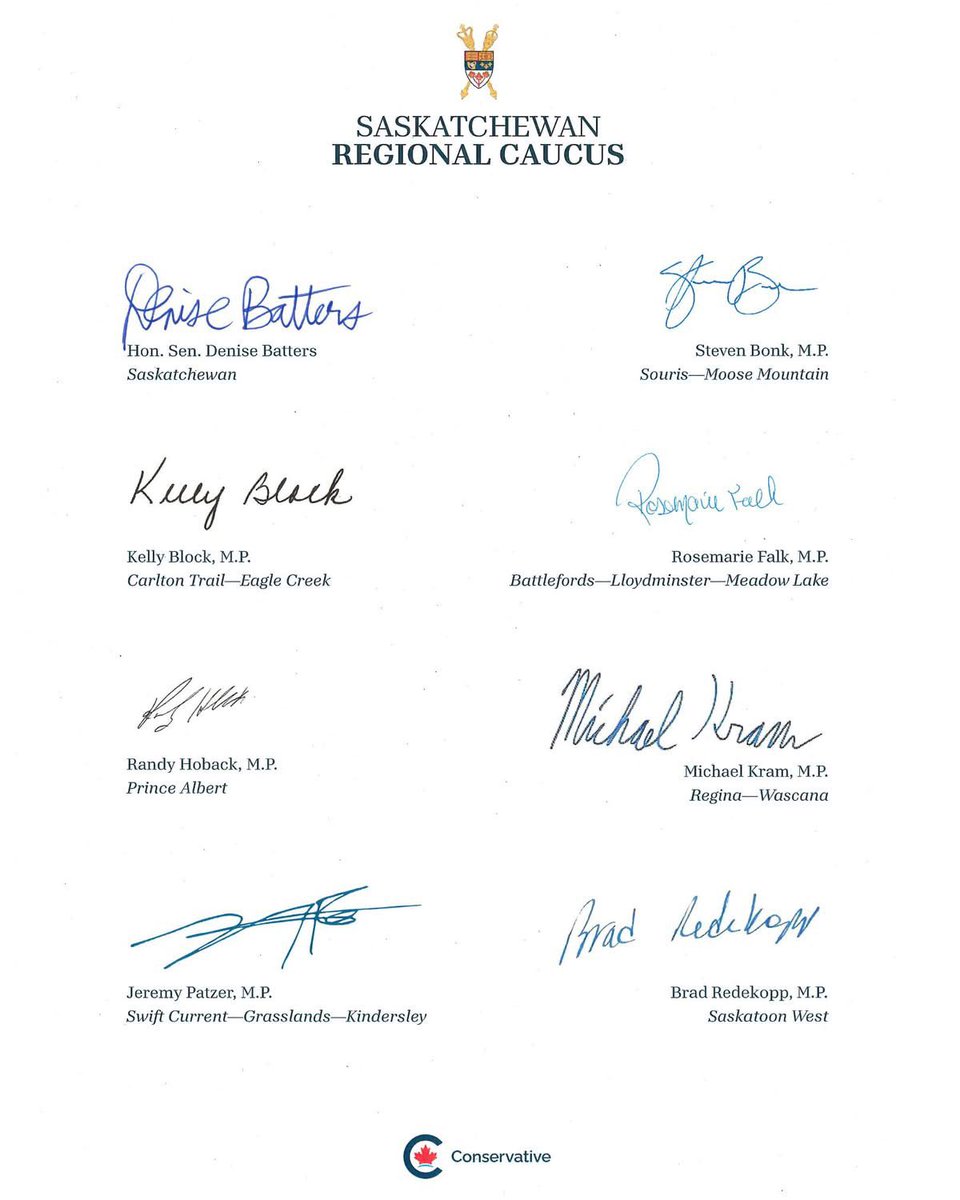 SASKATCHEWAN
REGIONAL CAUCUS
Denise Batters
Hon. Sen. Denise Batters
Saskatchewan
Steven Bonk, M.P.
Souris—Moose Mountain
Kelly Block
Kelly Block, M.P.
Carlton Trail—Eagle Creek
Rosemarie Falk
Rosemarie Falk, M.P.
Battlefords—Lloydminster—Meadow Lake
Randy Hoback, M.P.
Prince Albert
Michael Kram
Michael Kram, M.P.
Regina—Wascana
Jeremy Patzer, M.P.
Swift Current—Grasslands—Kindersley
Brad Redekopp
Brad Redekopp, M.P.
Saskatoon West
Conservative